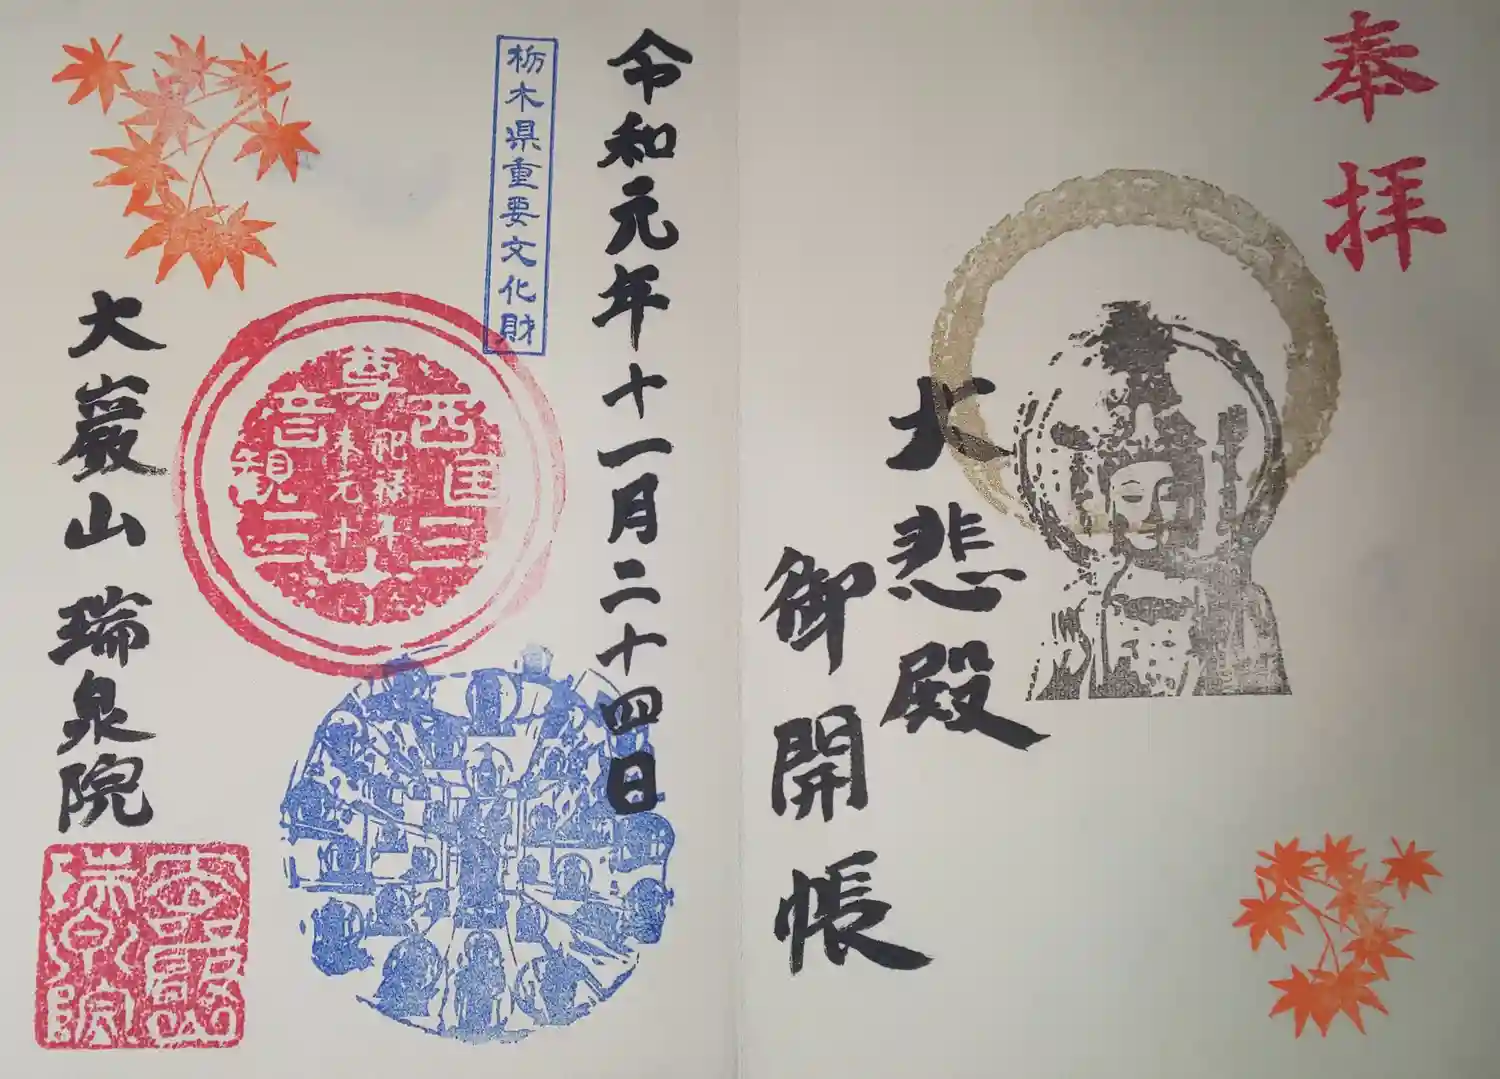 奉拝
大悲殿
御開帳
令和元年十一月二十四日
栃木県重要文化財
西国三十三
尊
音観
大巖山 瑞泉院
大巖山
瑞泉院